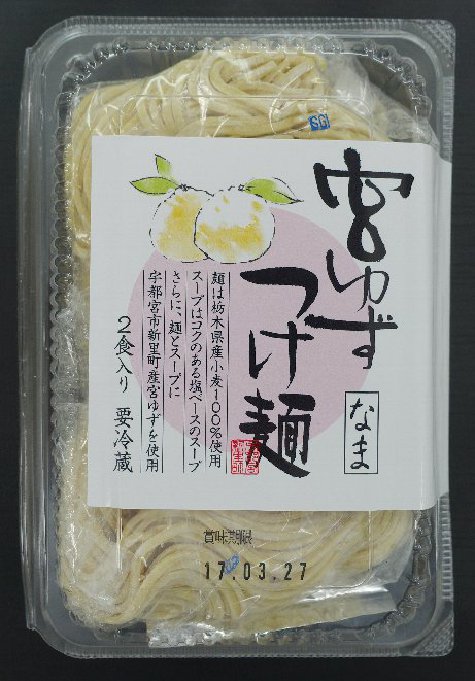 宮ゆず
つけ麺
なま
麺は栃木県産小麦100%使用
スープはコクのある塩ベースのスープ
さらに、麺とスープに
宇都宮市新里町産宮ゆずを使用
2食入り 要冷蔵
賞味期限
17.03.27